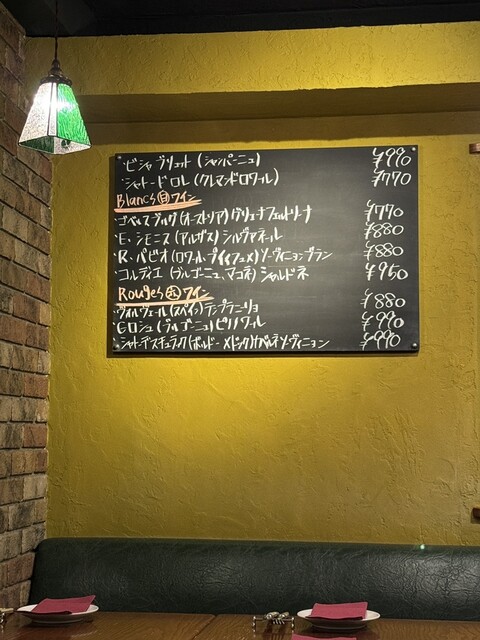 ・ビシャ ブリュット (シャンパーニュ) ¥990
・シャトードロレ (クレマンドロワール) ¥770
Blancs 白 ワイン
・ゴベルスブルグ (オーストリア) グリュナフェルトリーナ ¥770
・E・シモニス (アルザス) シルヴァネール ¥880
・R・パビオ (ロワール・プイィフュメ) ソーヴィニョンブラン ¥880
・コルディエ (ブルゴーニュ、マコネ) シャルドネ ¥950
Rouges 赤 ワイン
・ヴィルヴェール (スペイン) テンプラニーリョ ¥880
・ビロシュ (ブルゴーニュ) ピノノワール ¥990
・シャトーデスチュラック (ボルドー メドック) カベルネソーヴィニョン ¥990